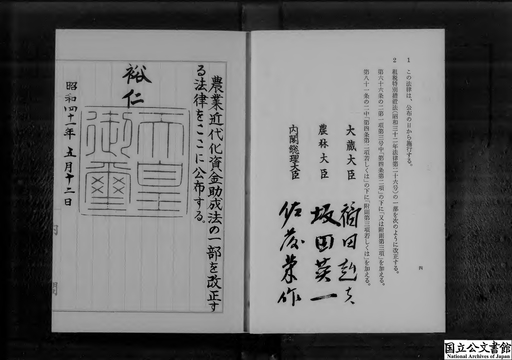 1 この法律は、公布の日から施行する。
2 租税特別措置法(昭和三十二年法律第二十六号)の一部を次のように改正する。
第六十六条の二第一項第三号中「第四条第二項」の下に「又は附則第三項」を加える。
第八十一条の二中「第四条第二項若しくは」の下に「附則第三項若しくは」を加える。
四
大蔵大臣 福田赳夫
農林大臣 坂田英一
内閣総理大臣 佐藤栄作
農業近代化資金助成法の一部を改正す
る法律をここに公布する。
裕仁
天皇
御璽
昭和四十一年五月十二日
国立公文書館
National Archives of Japan